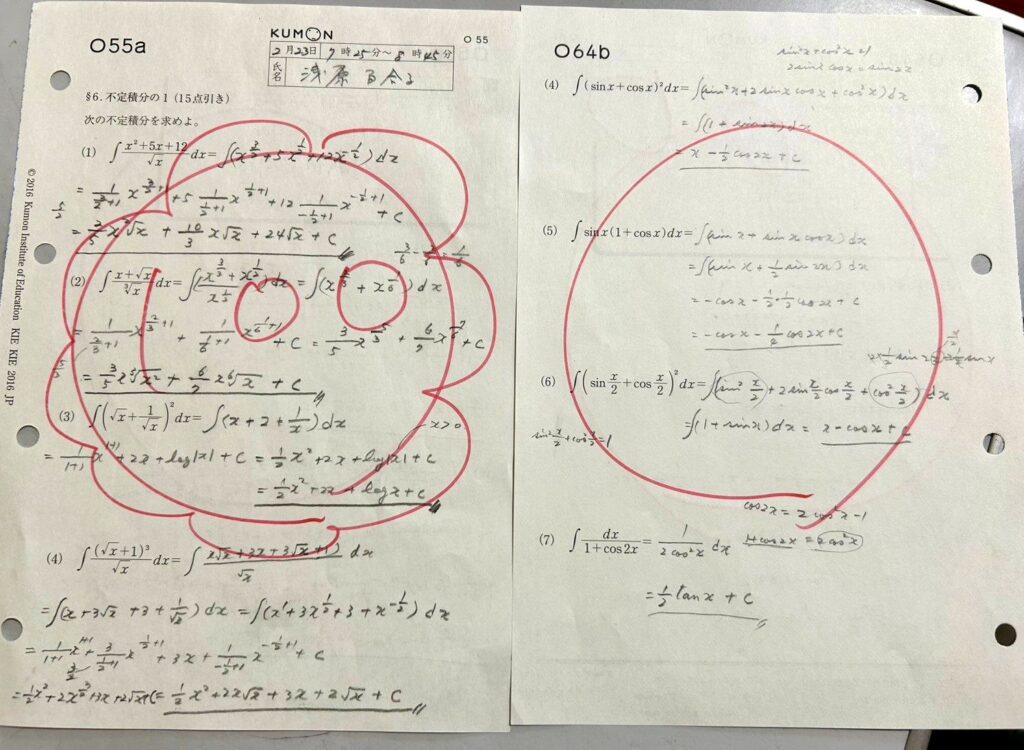 O55a
KUMON
O 55
2月23日 7時25分～8時45分
氏名
§6. 不定積分の1 (15点引き)
次の不定積分を求めよ。
(1) ∫ (x²+5x+12)/√x dx = ∫(x^(3/2)+5x^(1/2)+12x^(-1/2)) dx
= 1/(3/2+1) x^(3/2+1) + 5 1/(1/2+1) x^(1/2+1) + 12 1/(-1/2+1) x^(-1/2+1) + C
5/2
(2) ∫ (x+√x)/∛x dx
= 3/5 x ∛x² + 6/7 x ⁶√x + C
(3) ∫(√x + 1/√x)² dx = ∫(x + 2 + 1/x) dx
x>0
= 1/(1+1) x^(1+1) + 2x + log|x| + C = 1/2 x² + 2x + log|x| + C
= 1/2 x² + 2x + log x + C
(4) ∫ (√x+1)³/√x dx = ∫ (x√x + 3x + 3√x + 1)/√x dx
= ∫(x + 3√x + 3 + 1/√x) dx = ∫(x¹ + 3x^(1/2) + 3 + x^(-1/2)) dx
= 1/(1+1) x^(1+1) + 3/(1/2+1) x^(1/2+1) + 3x + 1/(-1/2+1) x^(-1/2+1) + C
3/2
= 1/2 x² + 2x^(3/2) + 3x + 2√x + C = 1/2 x² + 2x√x + 3x + 2√x + C
© 2016 Kumon Institute of Education KIE KIE 2016 JP
O64b
sin²x + cos²x = 1
2 sin x cos x = sin 2x
(4) ∫(sin x + cos x)² dx = ∫(sin²x + 2 sin x cos x + cos²x) dx
= ∫(1 + sin 2x) dx
= x - 1/2 cos 2x + C
(5) ∫ sin x (1 + cos x) dx = ∫(sin x + sin x cos x) dx
= ∫(sin x + 1/2 sin 2x) dx
= -cos x - 1/2・1/2 cos 2x + C
= -cos x - 1/4 cos 2x + C
(6) ∫(sin x/2 + cos x/2)² dx = ∫(sin² x/2 + 2 sin x/2 cos x/2 + cos² x/2) dx
sin² x/2 + cos² x/2 = 1
= ∫(1 + sin x) dx = x - cos x + C
cos 2x = 2 cos²x - 1
(7) ∫ dx/(1 + cos 2x) = 1/(2 cos²x) dx
1 + cos 2x = 2 cos²x
= 1/2 tan x + C